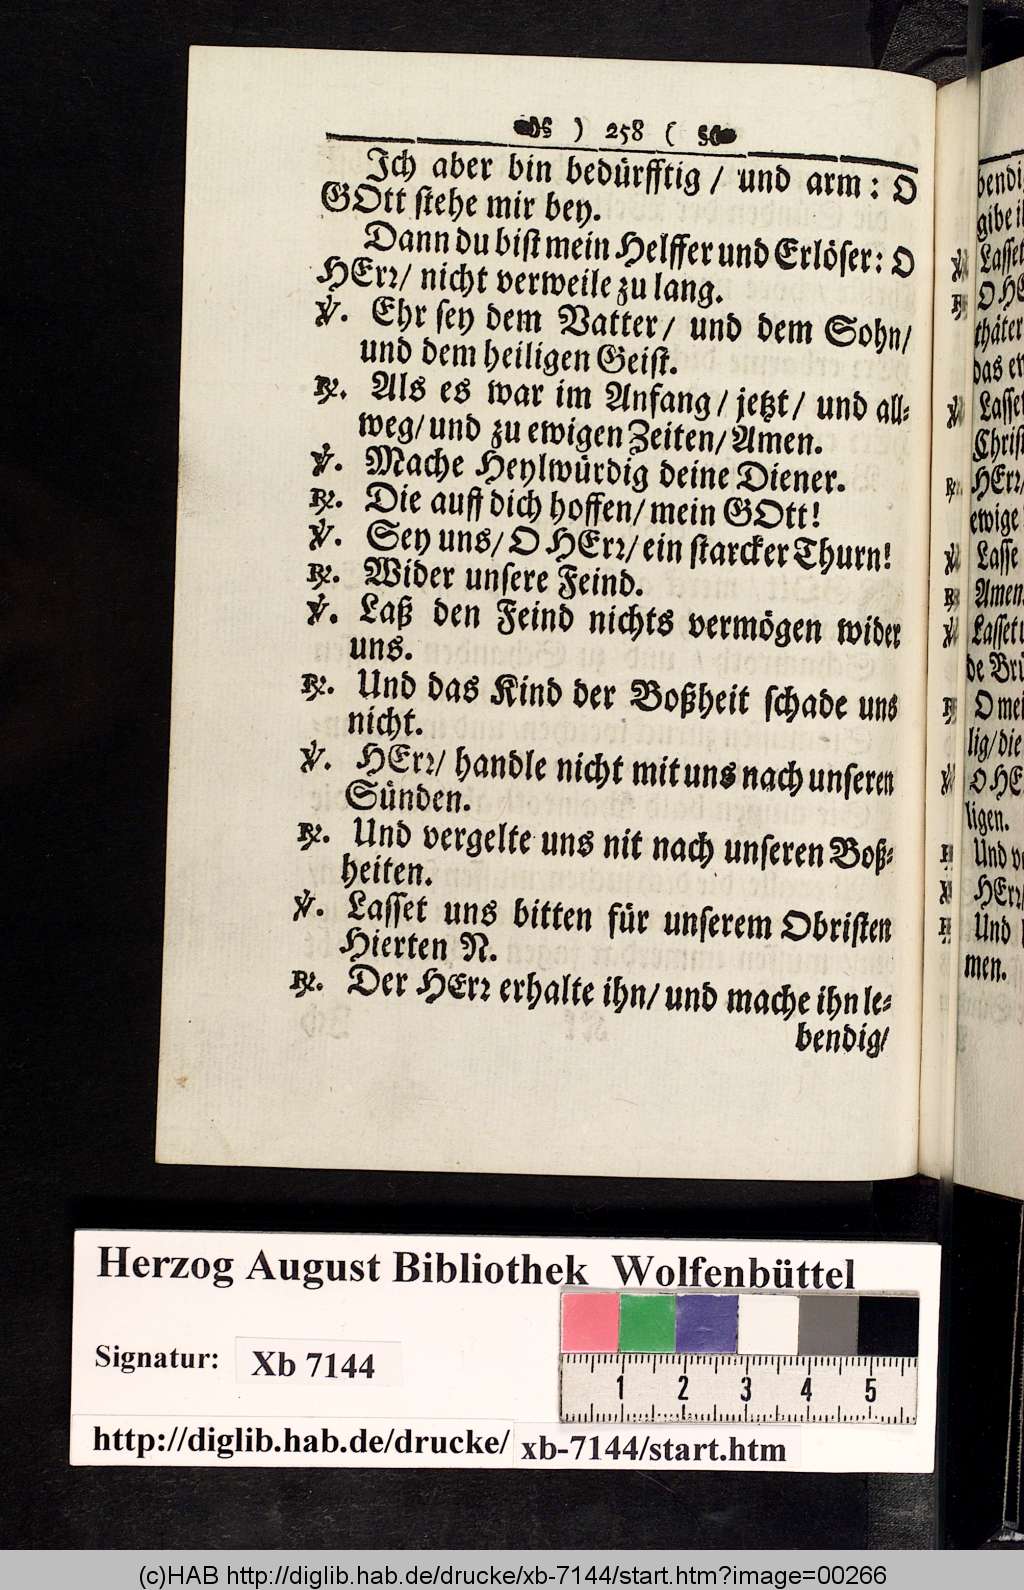 ) 258 (
Ich aber bin bedürfftig / und arm : O
GOtt stehe mir bey.
Dann du bist mein Helffer und Erlöser: O
HErr/ nicht verweile zu lang.
℣. Ehr sey dem Vatter/ und dem Sohn/
und dem heiligen Geist.
℟. Als es war im Anfang/ jetzt/ und all-
weg/ und zu ewigen Zeiten/ Amen.
℣. Mache Heylwürdig deine Diener.
℟. Die auff dich hoffen/ mein GOtt!
℣. Sey uns/ O HErr/ ein starcker Thurn!
℟. Wider unsere Feind.
℣. Laß den Feind nichts vermögen wider
uns.
℟. Und das Kind der Boßheit schade uns
nicht.
℣. HErr/ handle nicht mit uns nach unseren
Sünden.
℟. Und vergelte uns nit nach unseren Boß-
heiten.
℣. Lasset uns bitten für unserem Obristen
Hierten N.
℟. Der HErr erhalte ihn/ und mache ihn le-
bendig/
bendi
gibe i
℣ Lasset
℟ O HE
thäter
das ew
℣ Lasset
Christ
℟. HErr/
ewige
℣ Lasse
℟ Amen.
℣ Lasset u
de Brü
℟ O mei
lig/ die
℣ O HE
ligen.
℟ Und v
℣ HErr/
℟ Und
men.
Herzog August Bibliothek Wolfenbüttel
Signatur: Xb 7144
1 2 3 4 5
http://diglib.hab.de/drucke/ xb-7144/start.htm
(c)HAB http://diglib.hab.de/drucke/xb-7144/start.htm?image=00266